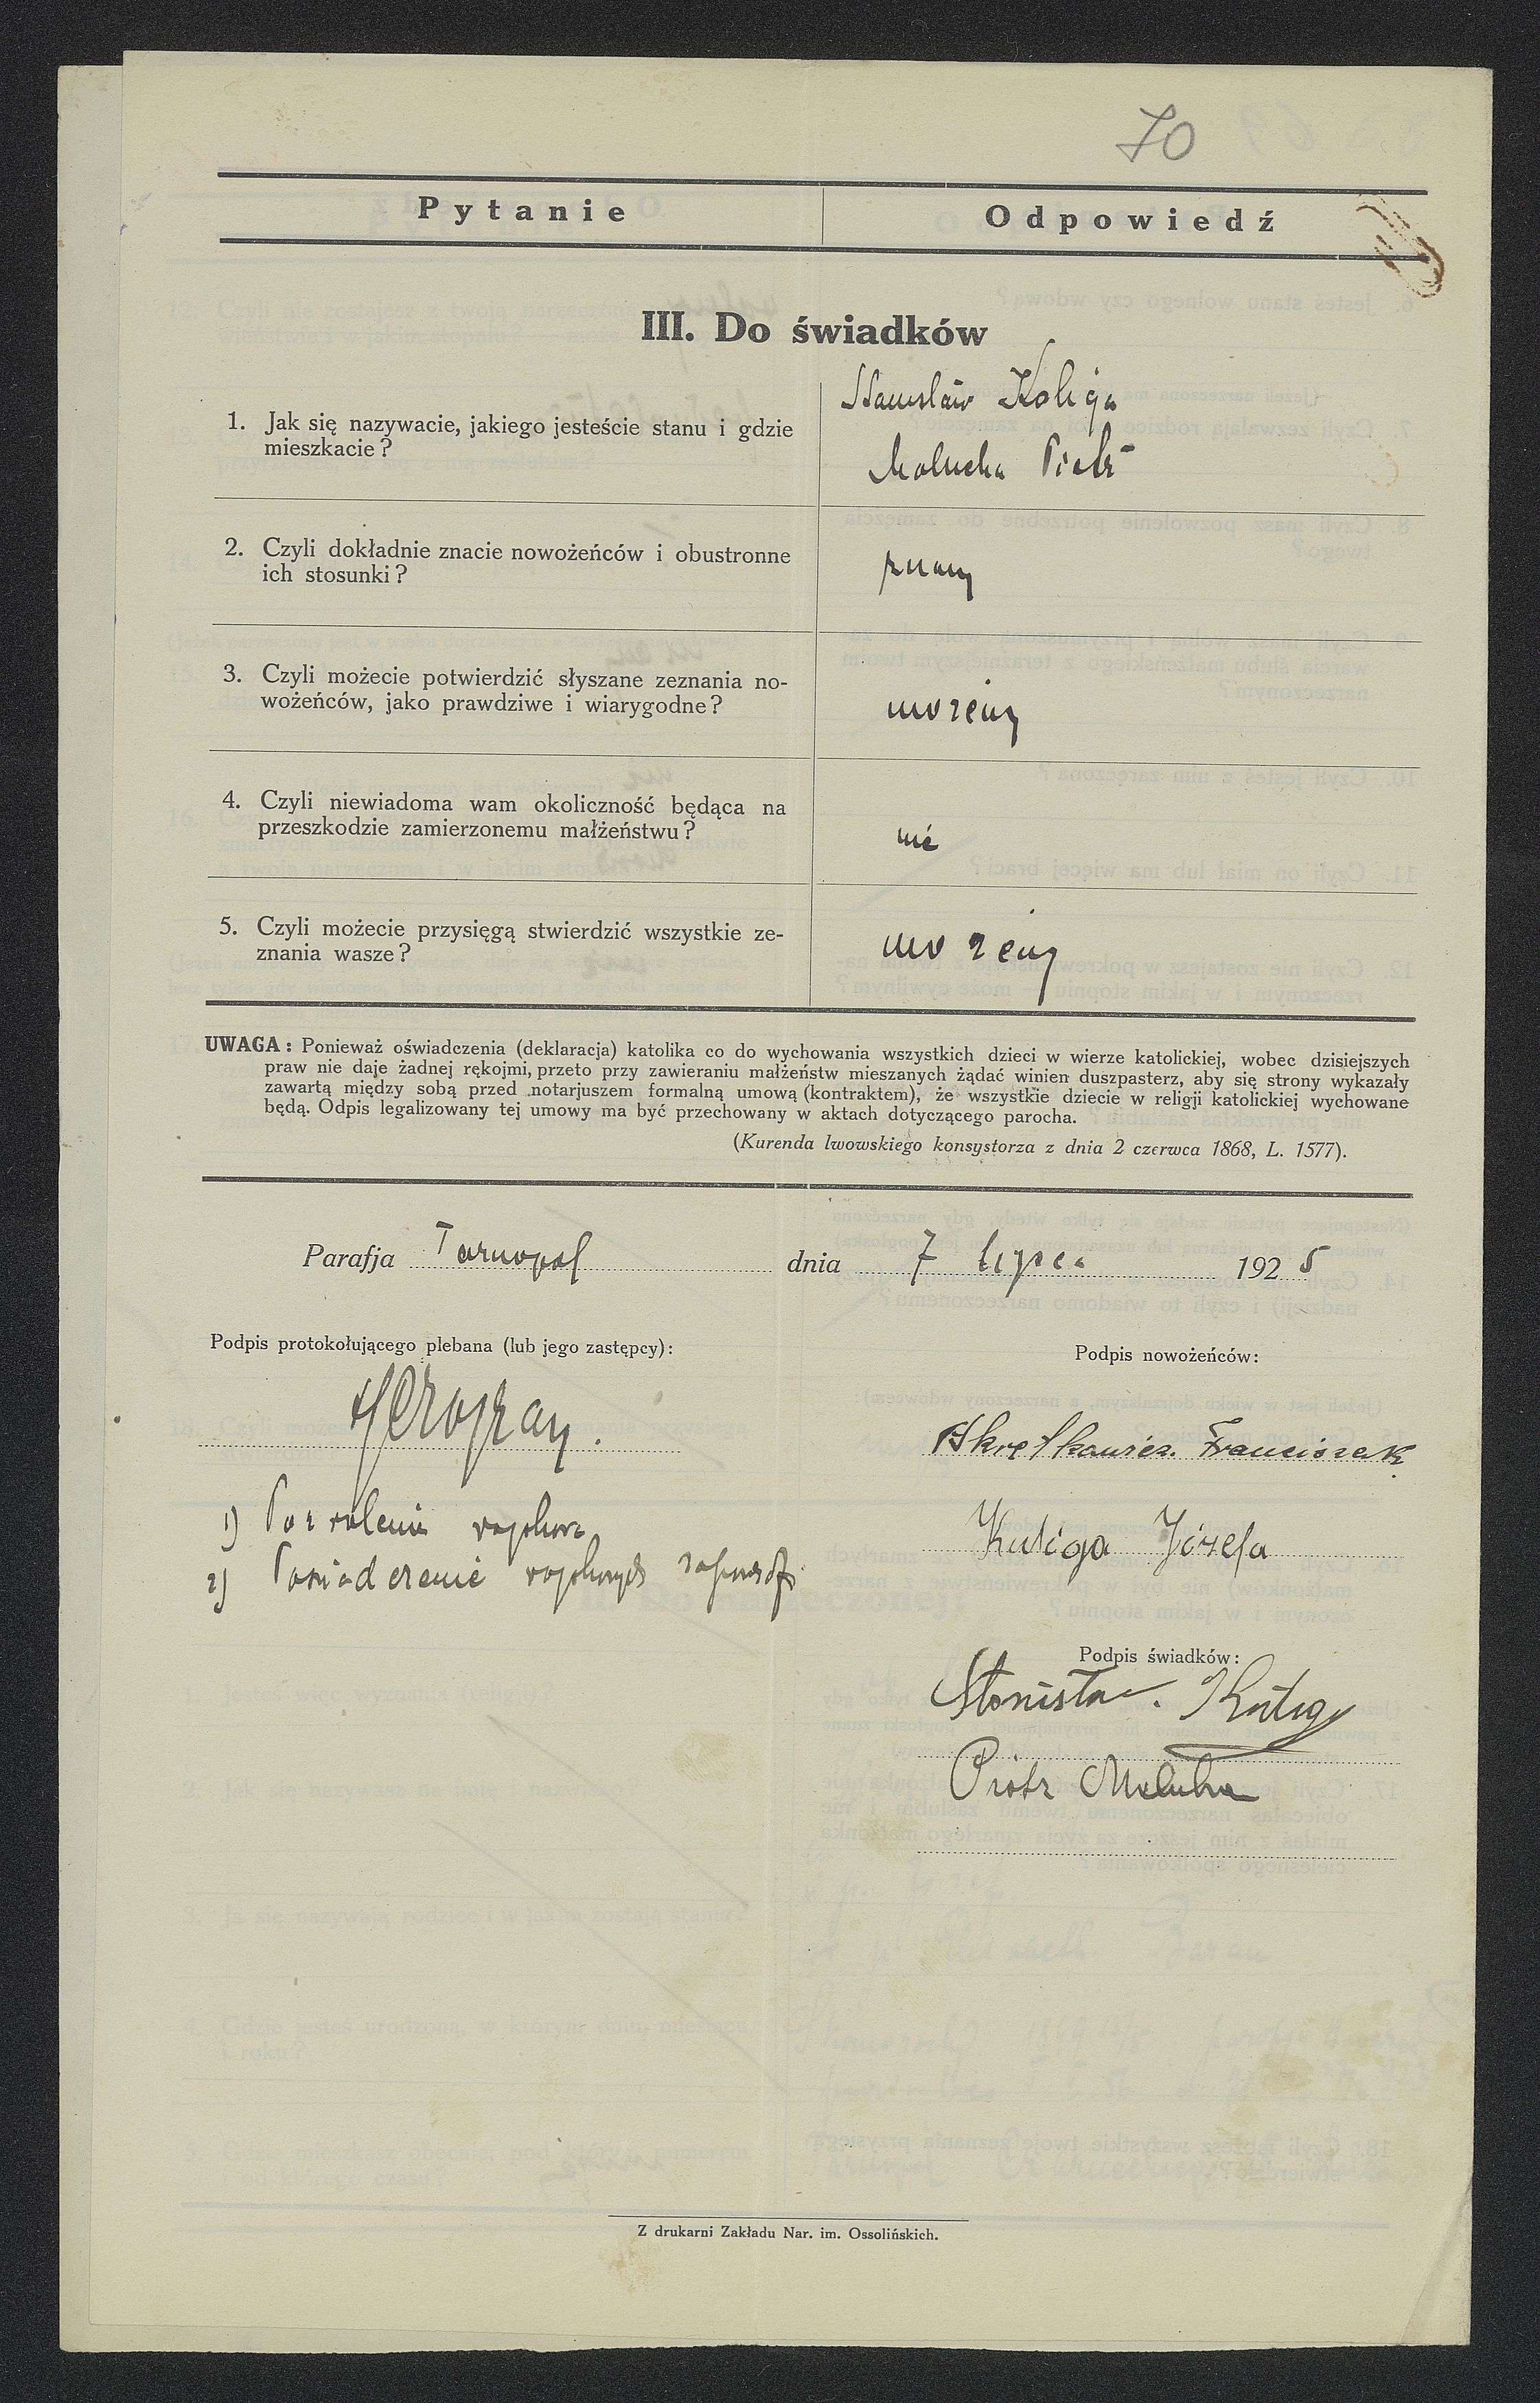 70
Pytanie
Odpowiedź
III. Do świadków
1. Jak się nazywacie, jakiego jesteście stanu i gdzie
mieszkacie?
Stanisław Koliga
Malucha Piotr
2. Czyli dokładnie znacie nowożeńców i obustronne
ich stosunki?
znamy
3. Czyli możecie potwierdzić słyszane zeznania no-
wożeńców, jako prawdziwe i wiarygodne?
możemy
4. Czyli niewiadoma wam okoliczność będąca na
przeszkodzie zamierzonemu małżeństwu?
nie
5. Czyli możecie przysięgą stwierdzić wszystkie ze-
znania wasze?
możemy
UWAGA: Ponieważ oświadczenia (deklaracja) katolika co do wychowania wszystkich dzieci w wierze katolickiej, wobec dzisiejszych
praw nie daje żadnej rękojmi, przeto przy zawieraniu małżeństw mieszanych żądać winien duszpasterz, aby się strony wykazały
zawartą między sobą przed notarjuszem formalną umową (kontraktem), że wszystkie dziecie w religji katolickiej wychowane
będą. Odpis legalizowany tej umowy ma być przechowany w aktach dotyczącego parocha.
(Kurenda lwowskiego konsystorza z dnia 2 czerwca 1868, L. 1577).
Parafja Tarnopol dnia 7 lipca 1925
Podpis protokołującego plebana (lub jego zastępcy):
Podpis nowożeńców:
Franciszek
Kuliga Józefa
1) Pozwolenie wojskowe
2) Poświadczenie wojskowych
Podpis świadków:
Stanisław Kuliga
Piotr Malucha
Z drukarni Zakładu Nar. im. Ossolińskich.